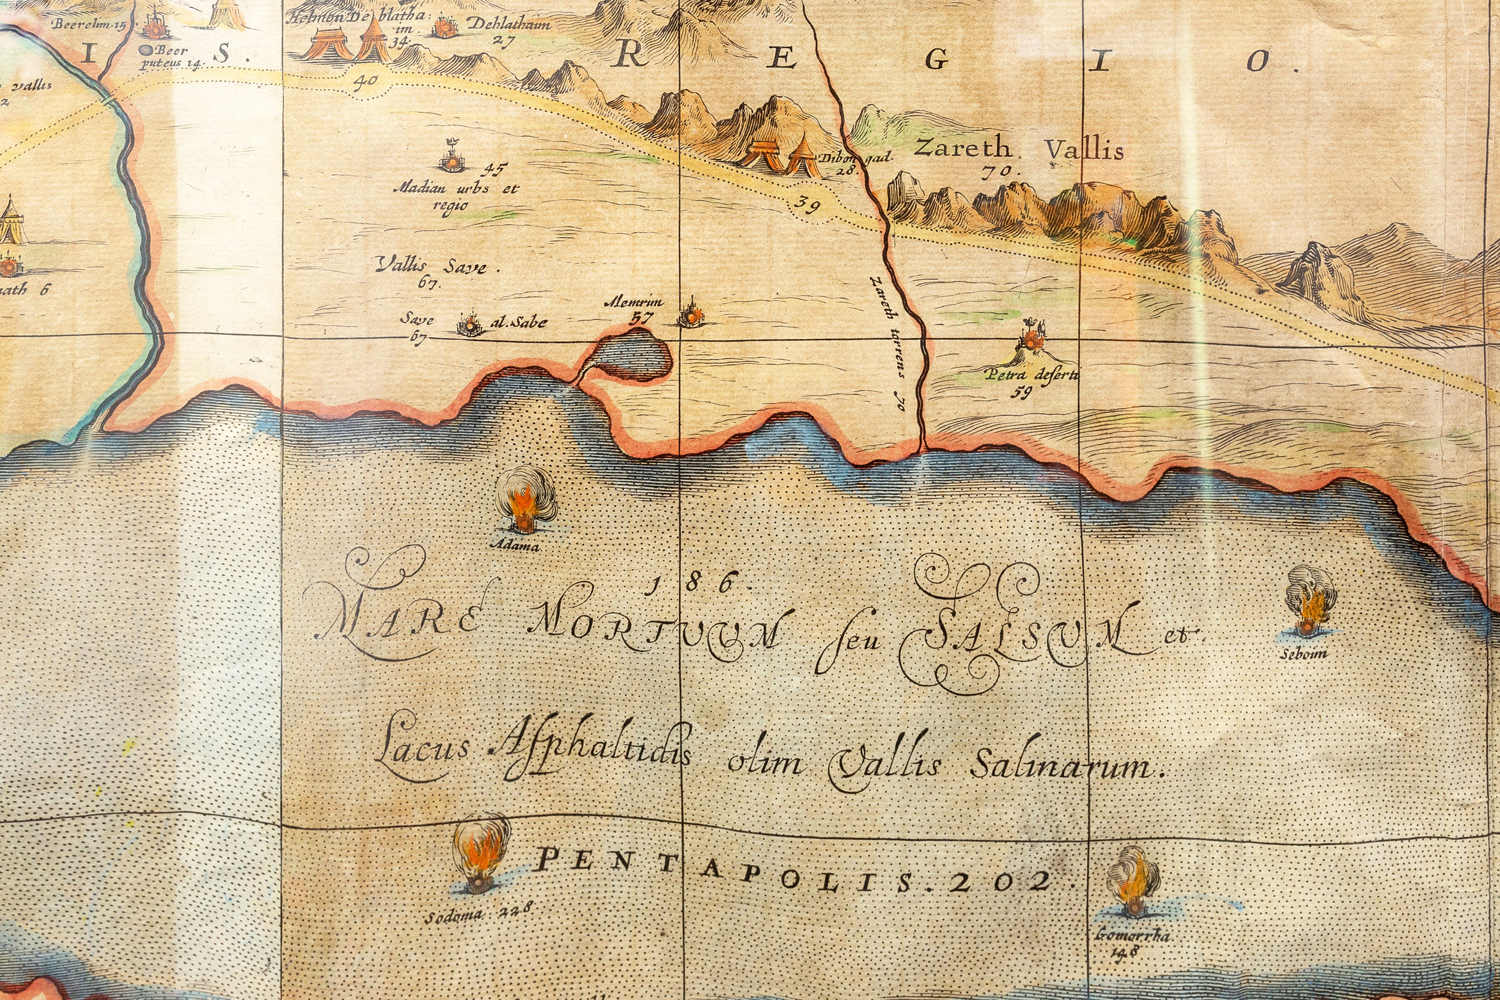 Beerelim 15
Beer
puteus 14.
I S.
Helmon De blatha:
im.
34.
Dehlathaim
27
R E G I O.
vallis
2
40
45
Madian urbs et
regio
Dibon gad.
28.
39
Zareth Vallis
70.
ath 6
Vallis Save.
67.
Save
67
al.Sabe
Memrim
57
Zareth torrens 70
Petra deserti
59
Adama
186.
MARE MORTUUM seu SALSUM et
Seboim
Lacus Asphaltidis olim Vallis Salinarum.
PENTAPOLIS. 202.
Sodoma 228
Gomorrha
148